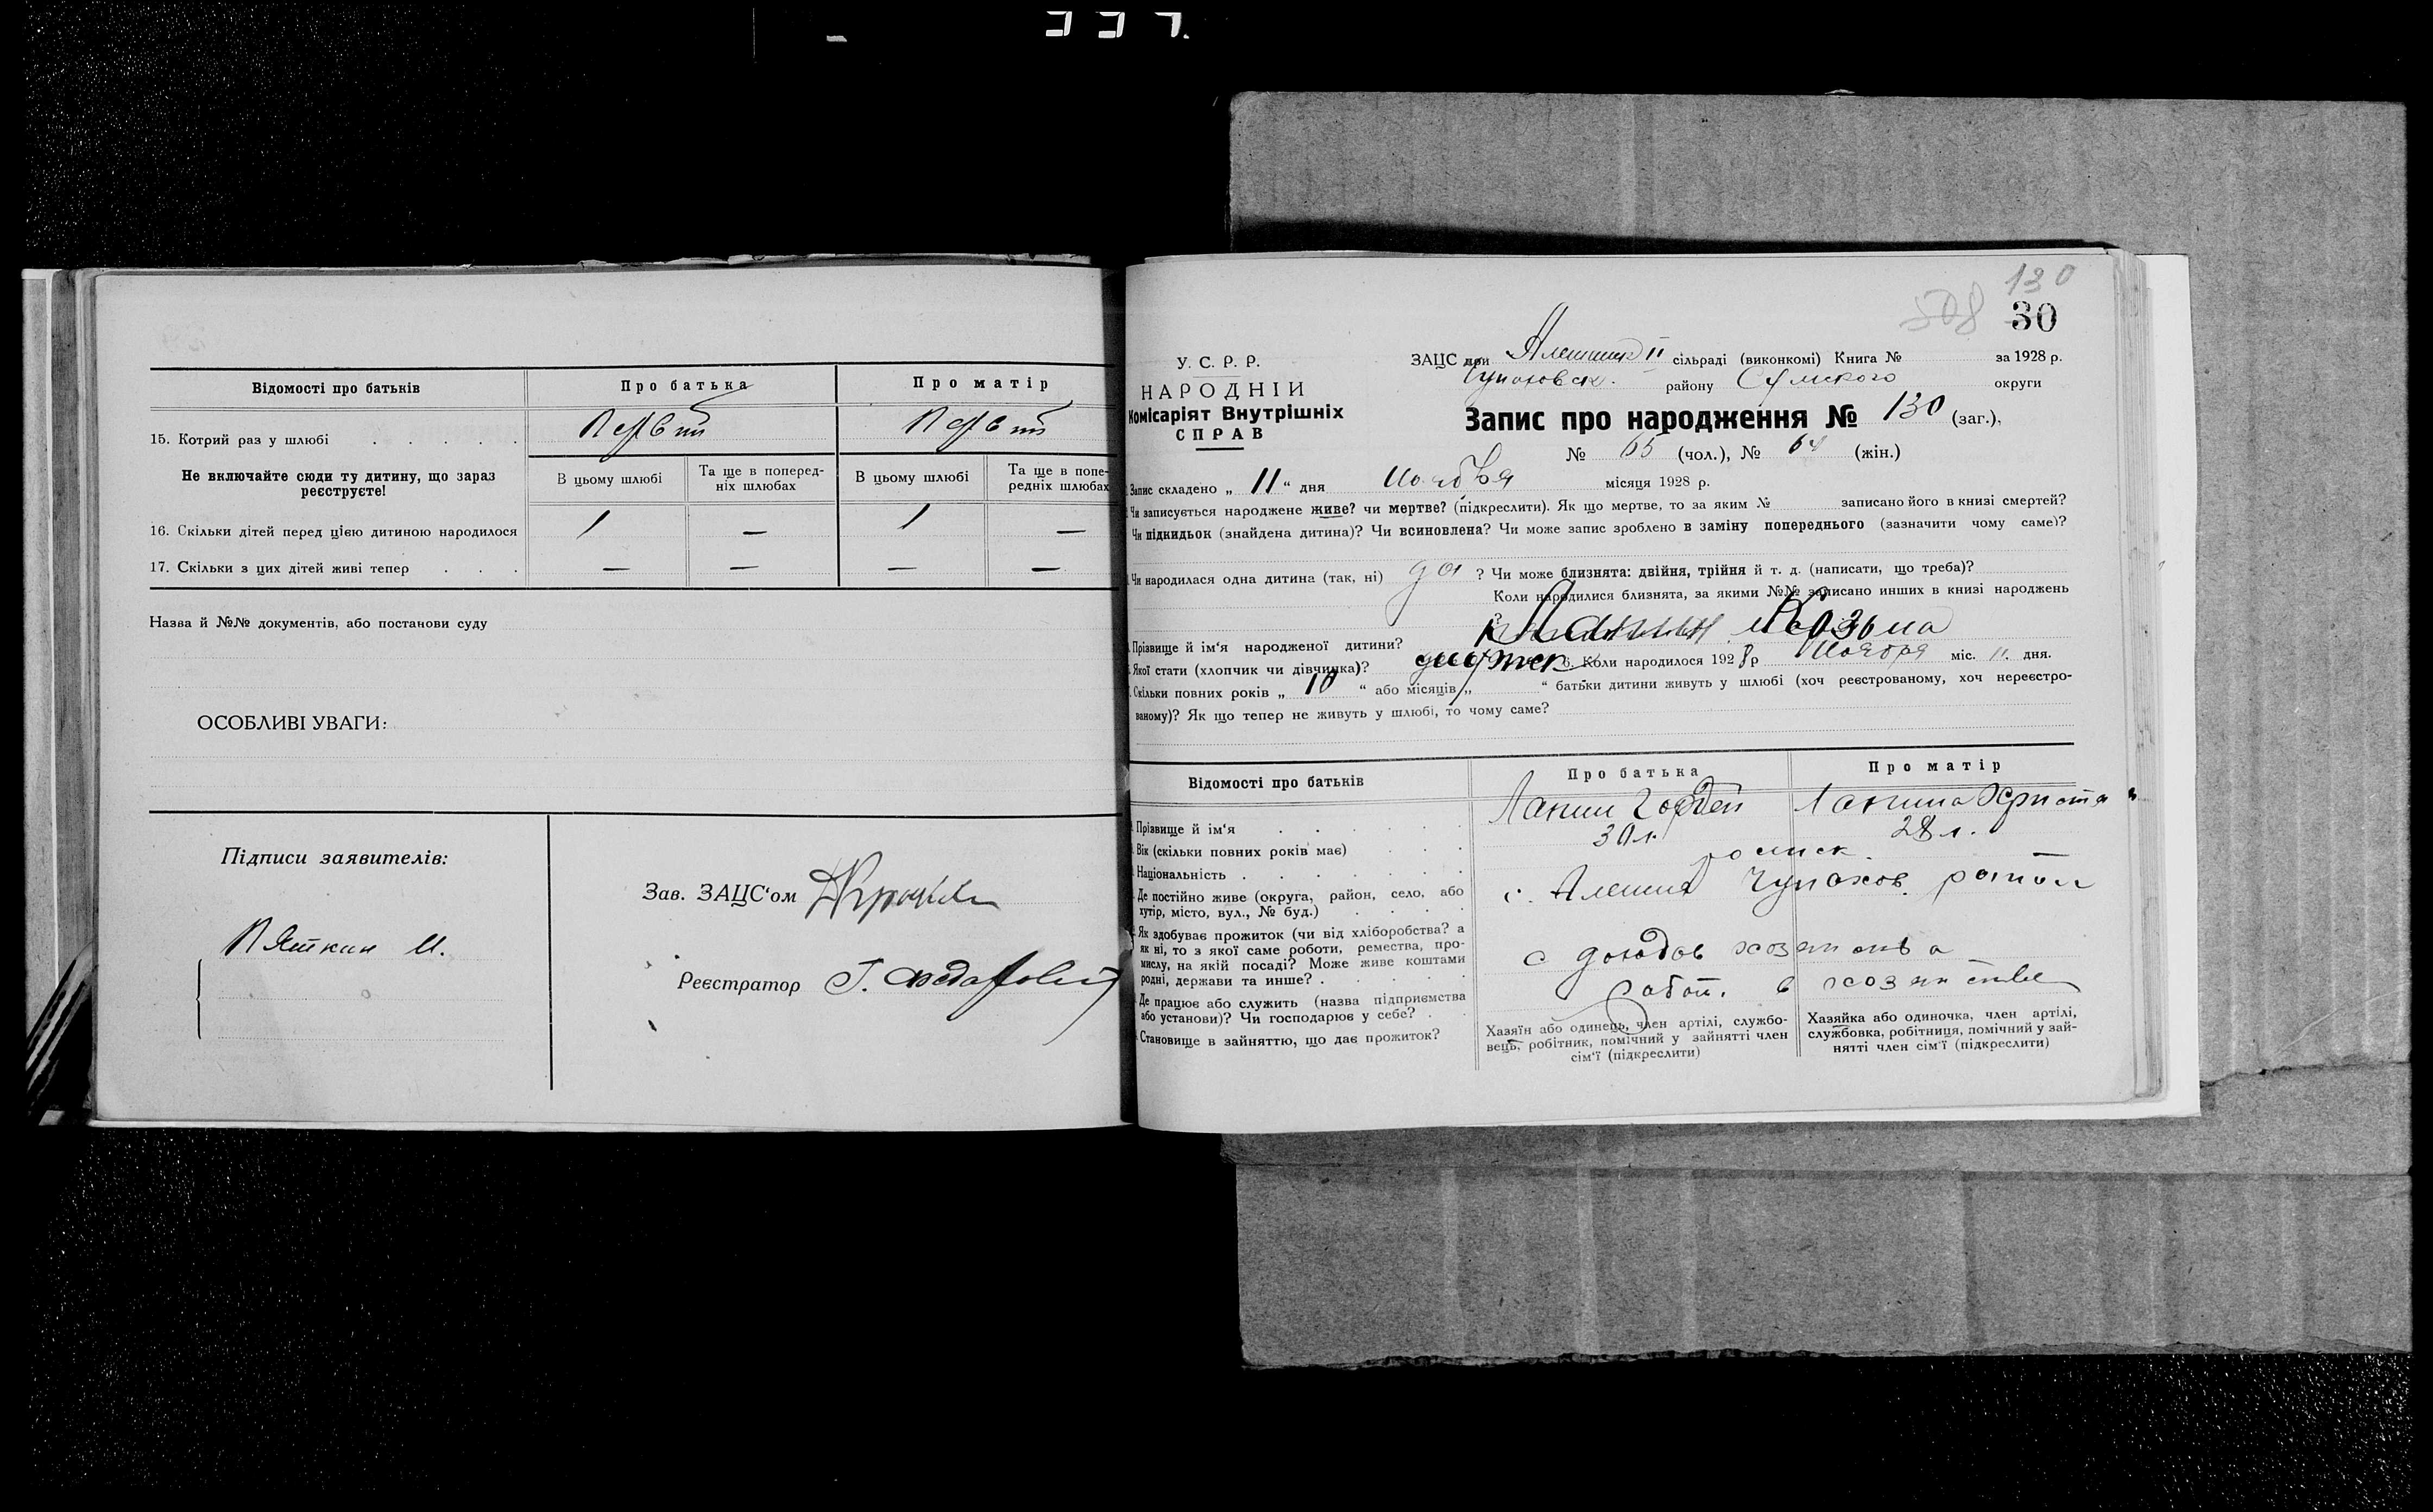 337.
Відомості про батьків
Про батька
Про матір
15. Котрий раз у шлюбі
Первий
Первий
Не включайте сюди ту дитину, що зараз реєструєте!
В цьому шлюбі
Та ще в поперед-
ніх шлюбах
В цьому шлюбі
Та ще в попе-
редніх шлюбах
16. Скільки дітей перед цією дитиною народилося
1 — 1 —
17. Скільки з цих дітей живі тепер . . .
— — — —
Назва й №№ документів, або постанови суду
ОСОБЛИВІ УВАГИ:
Підписи заявителів:
Зав. ЗАЦС'ом
Пяткин И.
Реєстратор
130
508 30
У. С. Р. Р.
НАРОДНІЙ
Комісаріят Внутрішніх
СПРАВ
ЗАЦС при сільраді (виконкомі) Книга № за 1928 р.
району Сумского округи
Запис про народження № 130 (заг.),
№ 65 (чол.), № (жін.)
Запис складено „ 11 “ дня Ноября місяця 1928 р.
Чи записується народжене живе? чи мертве? (підкреслити). Як що мертве, то за яким № записано його в книзі смертей?
Чи підкидьок (знайдена дитина)? Чи всиновлена? Чи може запис зроблено в заміну попереднього (зазначити чому саме)?
Чи народилася одна дитина (так, ні) да ? Чи може близнята: двійня, трійня й т. д. (написати, що треба)?
Коли народилися близнята, за якими №№ записано инших в книзі народжень
?
Прізвище й ім'я народженої дитини? Лапин Козьма
Якої стати (хлопчик чи дівчинка)? 6. Коли народилося 1928 р Ноября міс. 11. дня.
Скільки повних років „ 10 “ або місяців „ “ батьки дитини живуть у шлюбі (хоч реєстрованому, хоч нереєстро-
ваному)? Як що тепер не живуть у шлюбі, то чому саме?
Відомості про батьків
Про батька
Про матір
Прізвище й ім'я . . . .
Гордей
Вік (скільки повних років має) . . .
30 л.
28 л.
Національність . . . . . .
Де постійно живе (округа, район, село, або
хутір, місто, вул., № буд.) . . . .
Як здобуває прожиток (чи від хліборобства? а
як ні, то з якої саме роботи, ремества, про-
мислу, на якій посаді? Може живе коштами
родні, держави та инше? . . . .
Де працює або служить (назва підприємства
або установи)? Чи господарює у себе? . .
Становище в зайняттю, що дає прожиток?
с доходов хозяиства
работ. в хозяистве
Хазяїн або одинець, член артілі, службо-
вець, робітник, помічний у зайнятті член
сім'ї (підкреслити)
Хазяйка або одиночка, член артілі,
службовка, робітниця, помічний у зай-
нятті член сім'ї (підкреслити)